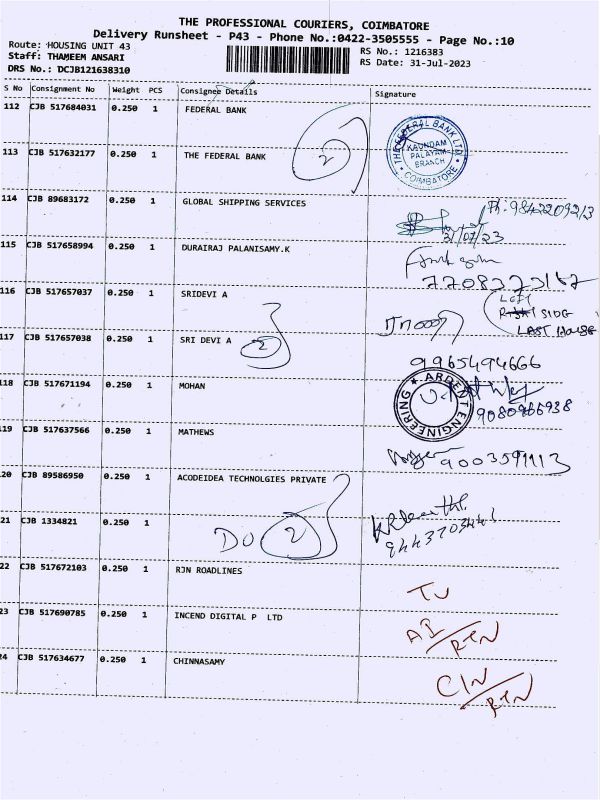 THE PROFESSIONAL COURIERS, COIMBATORE
Delivery Runsheet - P43 - Phone No.:0422-3505555 - Page No.:10
Route: HOUSING UNIT 43
RS No.: 1216383
Staff: THAMEEM ANSARI
RS Date: 31-Jul-2023
DRS No.: DCJB121638310
S No Consignment No Weight PCS Consignee Details Signature
112 CJB 517684031 0.250 1 FEDERAL BANK
THE FEDERAL BANK LTD.
KAUNDAM
PALAYAM
BRANCH
COIMBATORE
113 CJB 517632177 0.250 1 THE FEDERAL BANK
2
114 CJB 89683172 0.250 1 GLOBAL SHIPPING SERVICES
31/07/23
115 CJB 517658994 0.250 1 DURAIRAJ PALANISAMY.K
116 CJB 517657037 0.250 1 SRIDEVI A
LEFT
SIDE
LAST HOUSE
117 CJB 517657038 0.250 1 SRI DEVI A
2
9965494666
118 CJB 517671194 0.250 1 MOHAN
ARDENT ENGINEERING
119 CJB 517637566 0.250 1 MATHEWS
20 CJB 89586950 0.250 1 ACODEIDEA TECHNOLGIES PRIVATE
21 CJB 1334821 0.250 1
DO 2
22 CJB 517672103 0.250 1 RJN ROADLINES
23 CJB 517690785 0.250 1 INCEND DIGITAL P LTD
RTN
24 CJB 517634677 0.250 1 CHINNASAMY
RTN